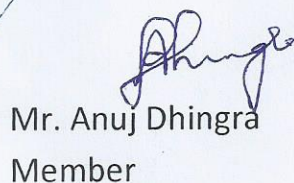 Dhingra
Mr. Anuj Dhingra
Member